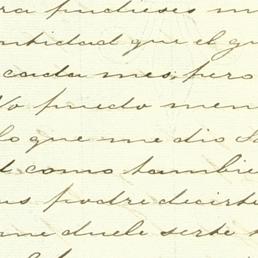 ra pudieses m
ntidad que el qu
cada mes, pero
No puedo men
lo que me dio
como tambie
us podre decirte
me duele serte